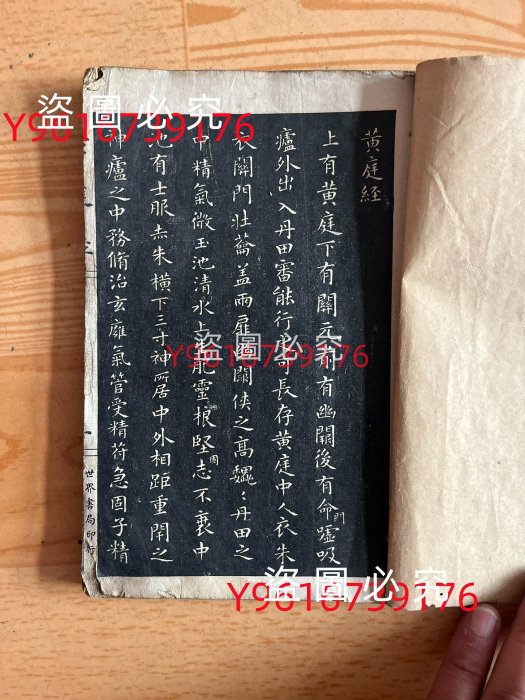 黄庭経
上有黄庭下有關元前有幽闕後有命門噓吸
廬外出入丹田審能行之可長存黄庭中人衣朱
衣關門壮蘥盖兩扉幽闕侠之高巍：丹田之
中精氣微玉池清水上生肥靈根堅固志不衰中
池有士服赤朱横下三寸神所居中外相距重閇之
神廬之中務脩治玄廱氣管受精符急固子精
三
一
世界書局印行
盜圖必究
Y9616739176
盜圖必究
Y9616739176
盜圖必究
Y9616739176